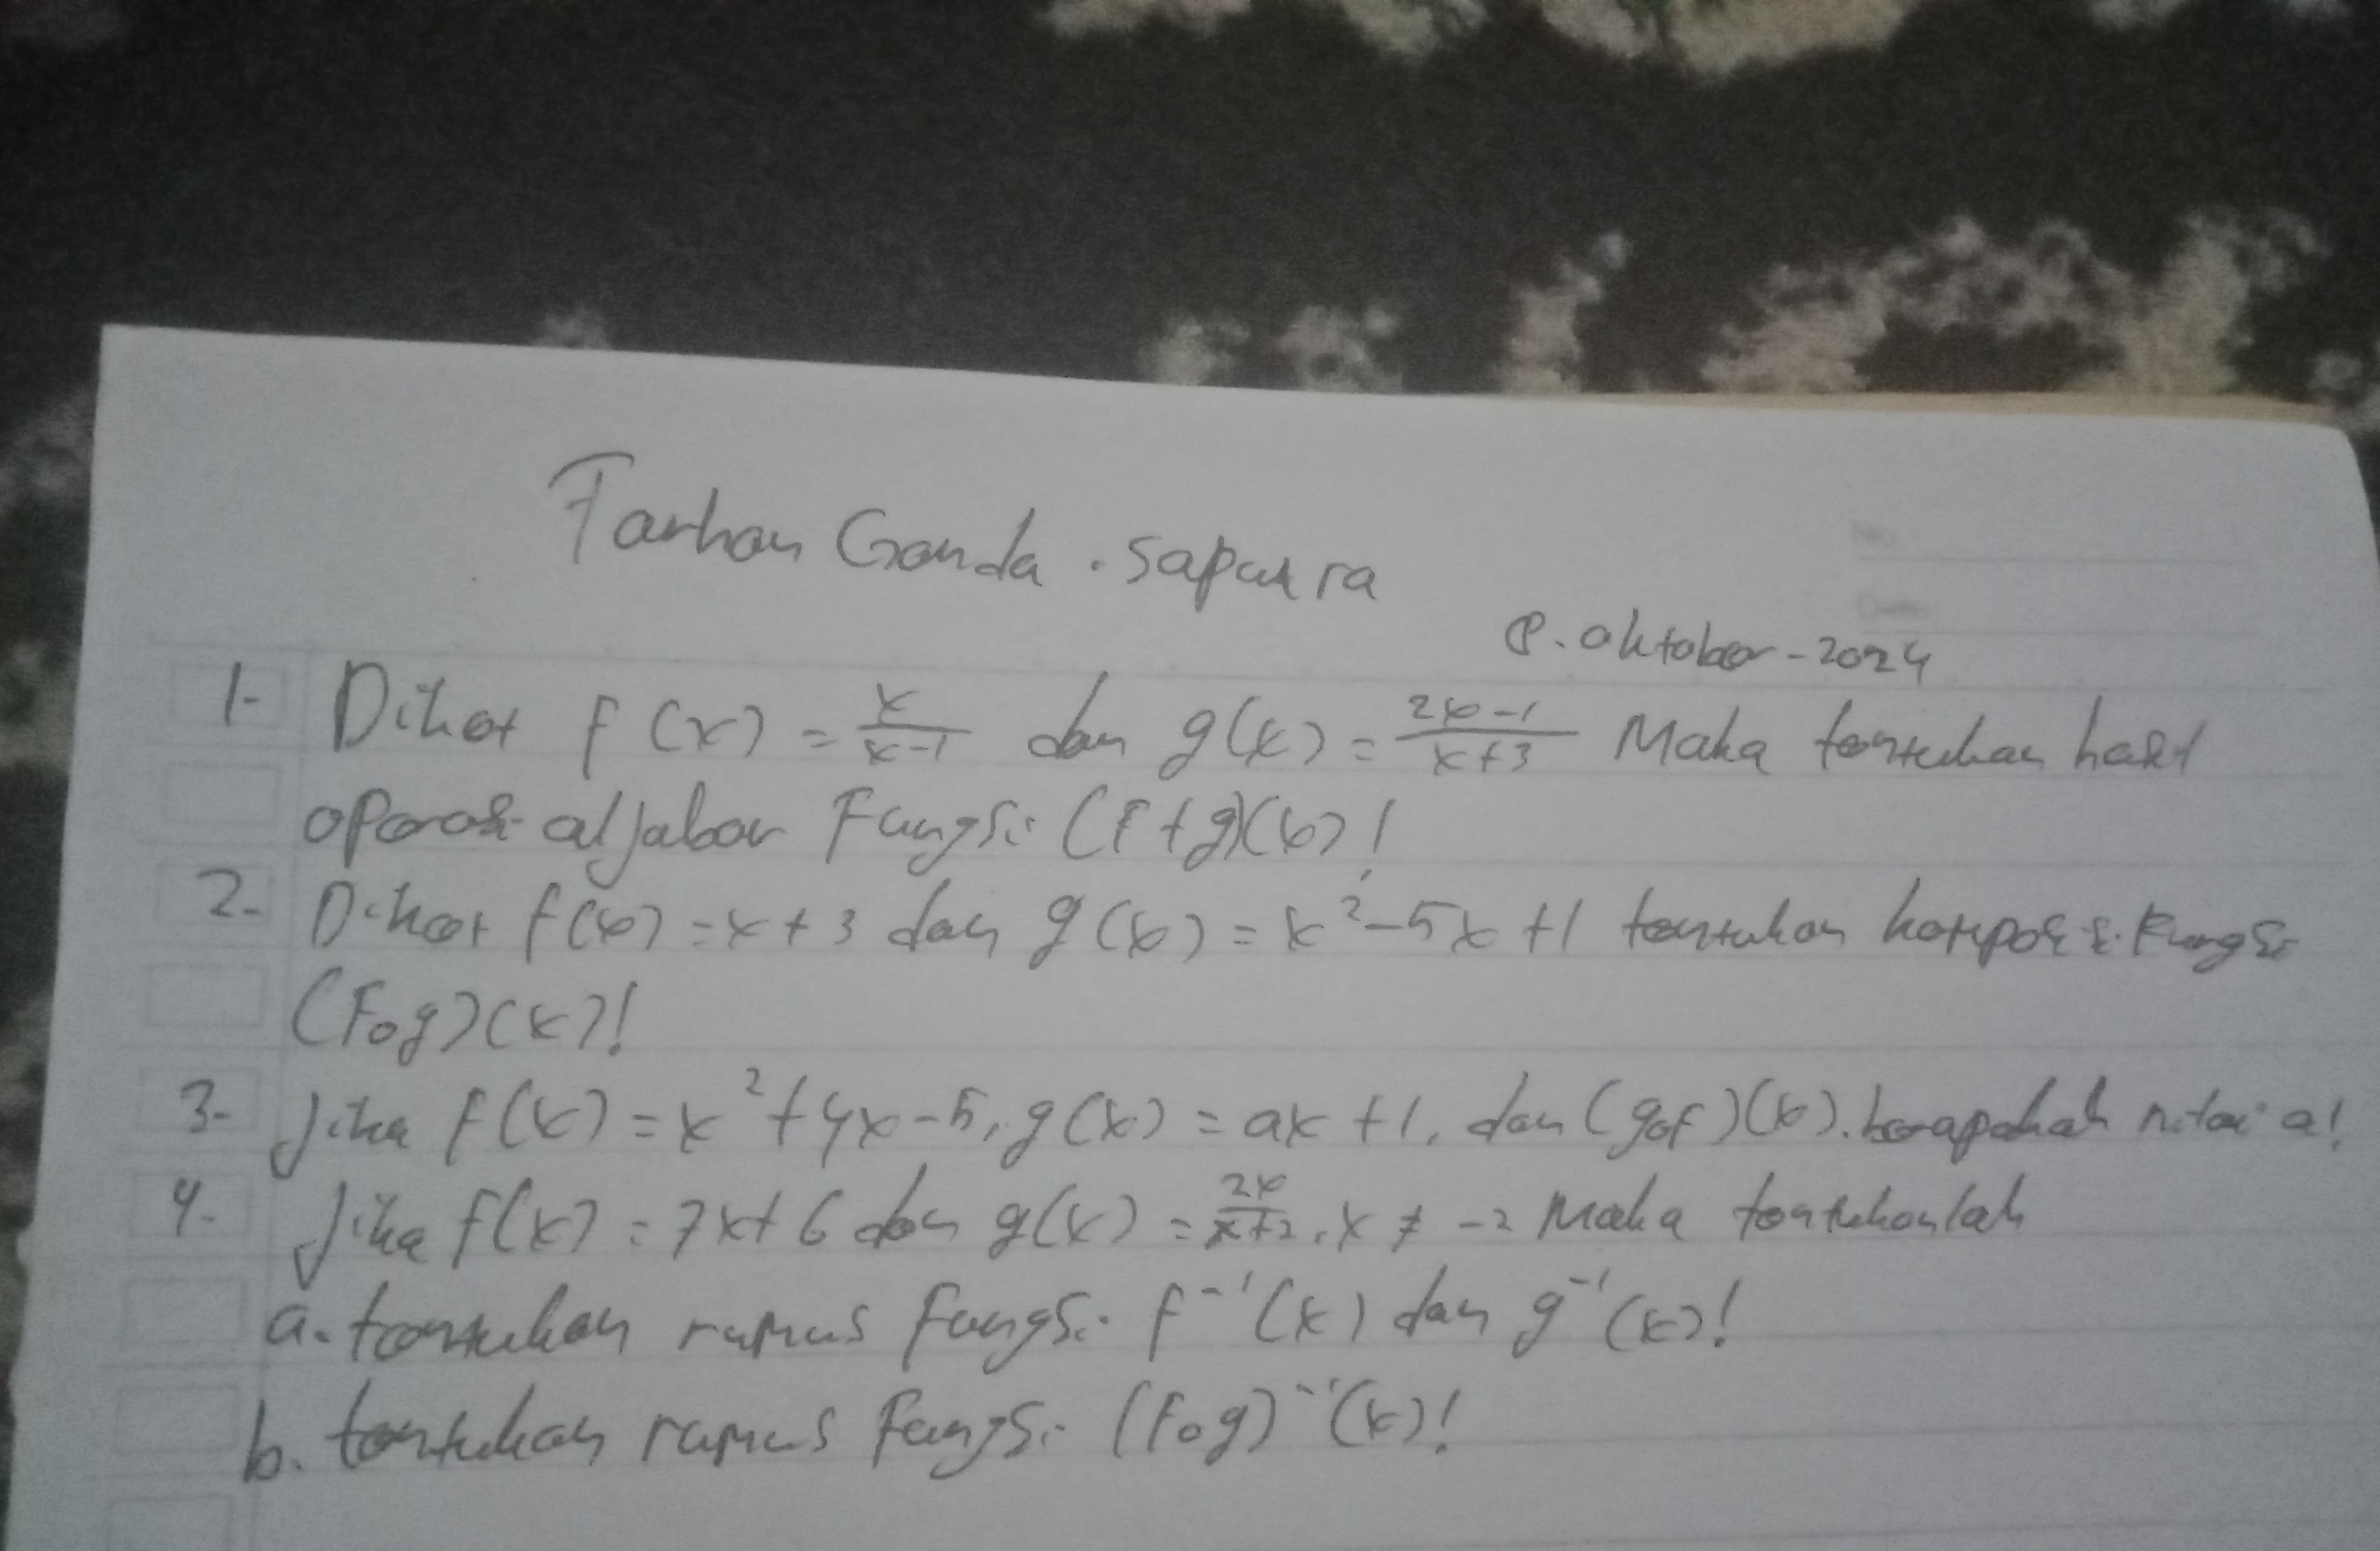 Farhan Ganda . saputra
8. oktober - 2024
1. Diket f(x) = x/x-1 dan g(x) = 2x-1/x+3 Maka tentukan hasil
operasi aljabar Fungsi (f+g)(x)!
2. Diket f(x) = x+3 dan g(x) = x²-5x+1 tentukan komposisi Fungsi
(Fog)(x)!
3. Jika f(x) = x²+4x-5, g(x) = ax+1, dan (gof)(x). berapakah nilai a!
4. Jika f(x) = 7x+6 dan g(x) = 2x/x+2, x ≠ -2 Maka tentukanlah
a. tentukan rumus fungsi f⁻¹(x) dan g⁻¹(x)!
b. tentukan rumus Fungsi (Fog)⁻¹(x)!